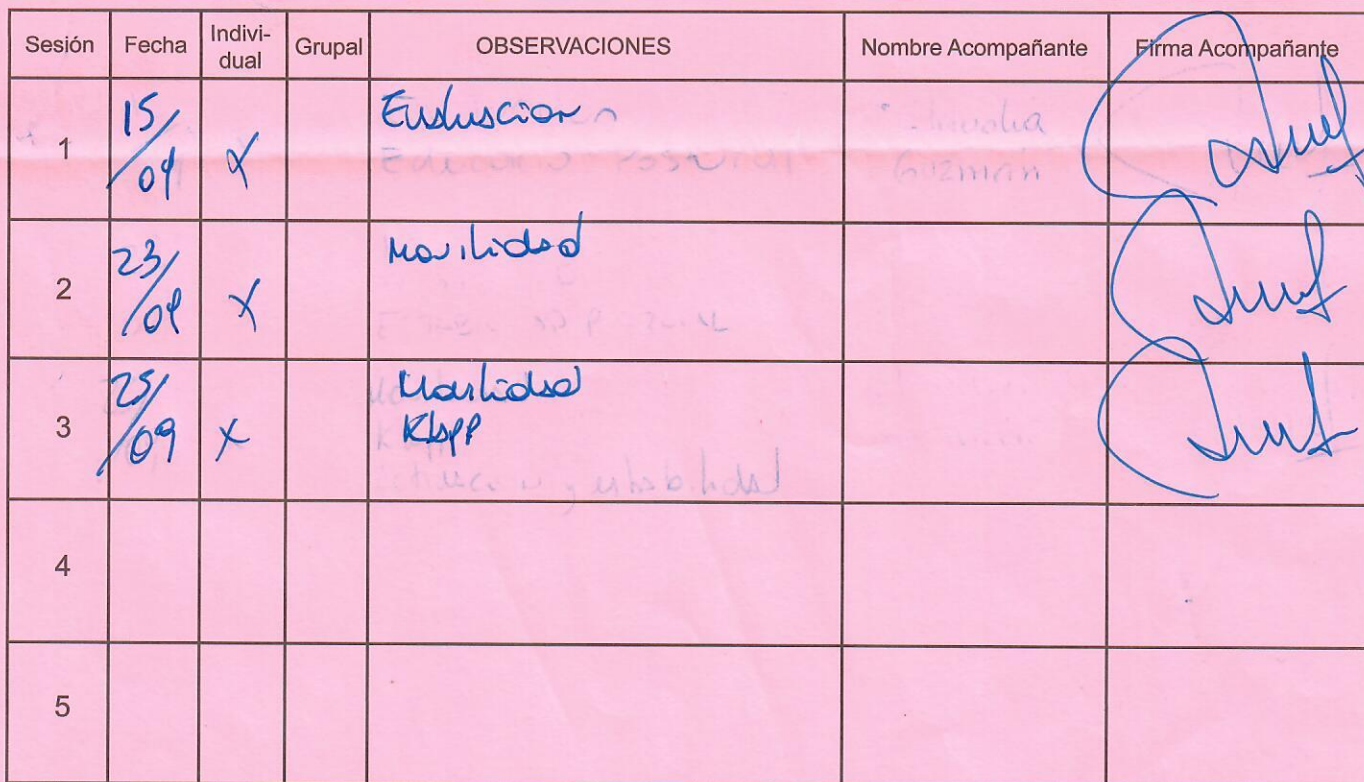 Sesión Fecha Indivi-dual Grupal OBSERVACIONES Nombre Acompañante Firma Acompañante
1 15/09 X Evaluacion
Guzmán
2 23/09 X Movilidad
3 25/09 X Movilidad
Klapp
y estabilidad
4
5